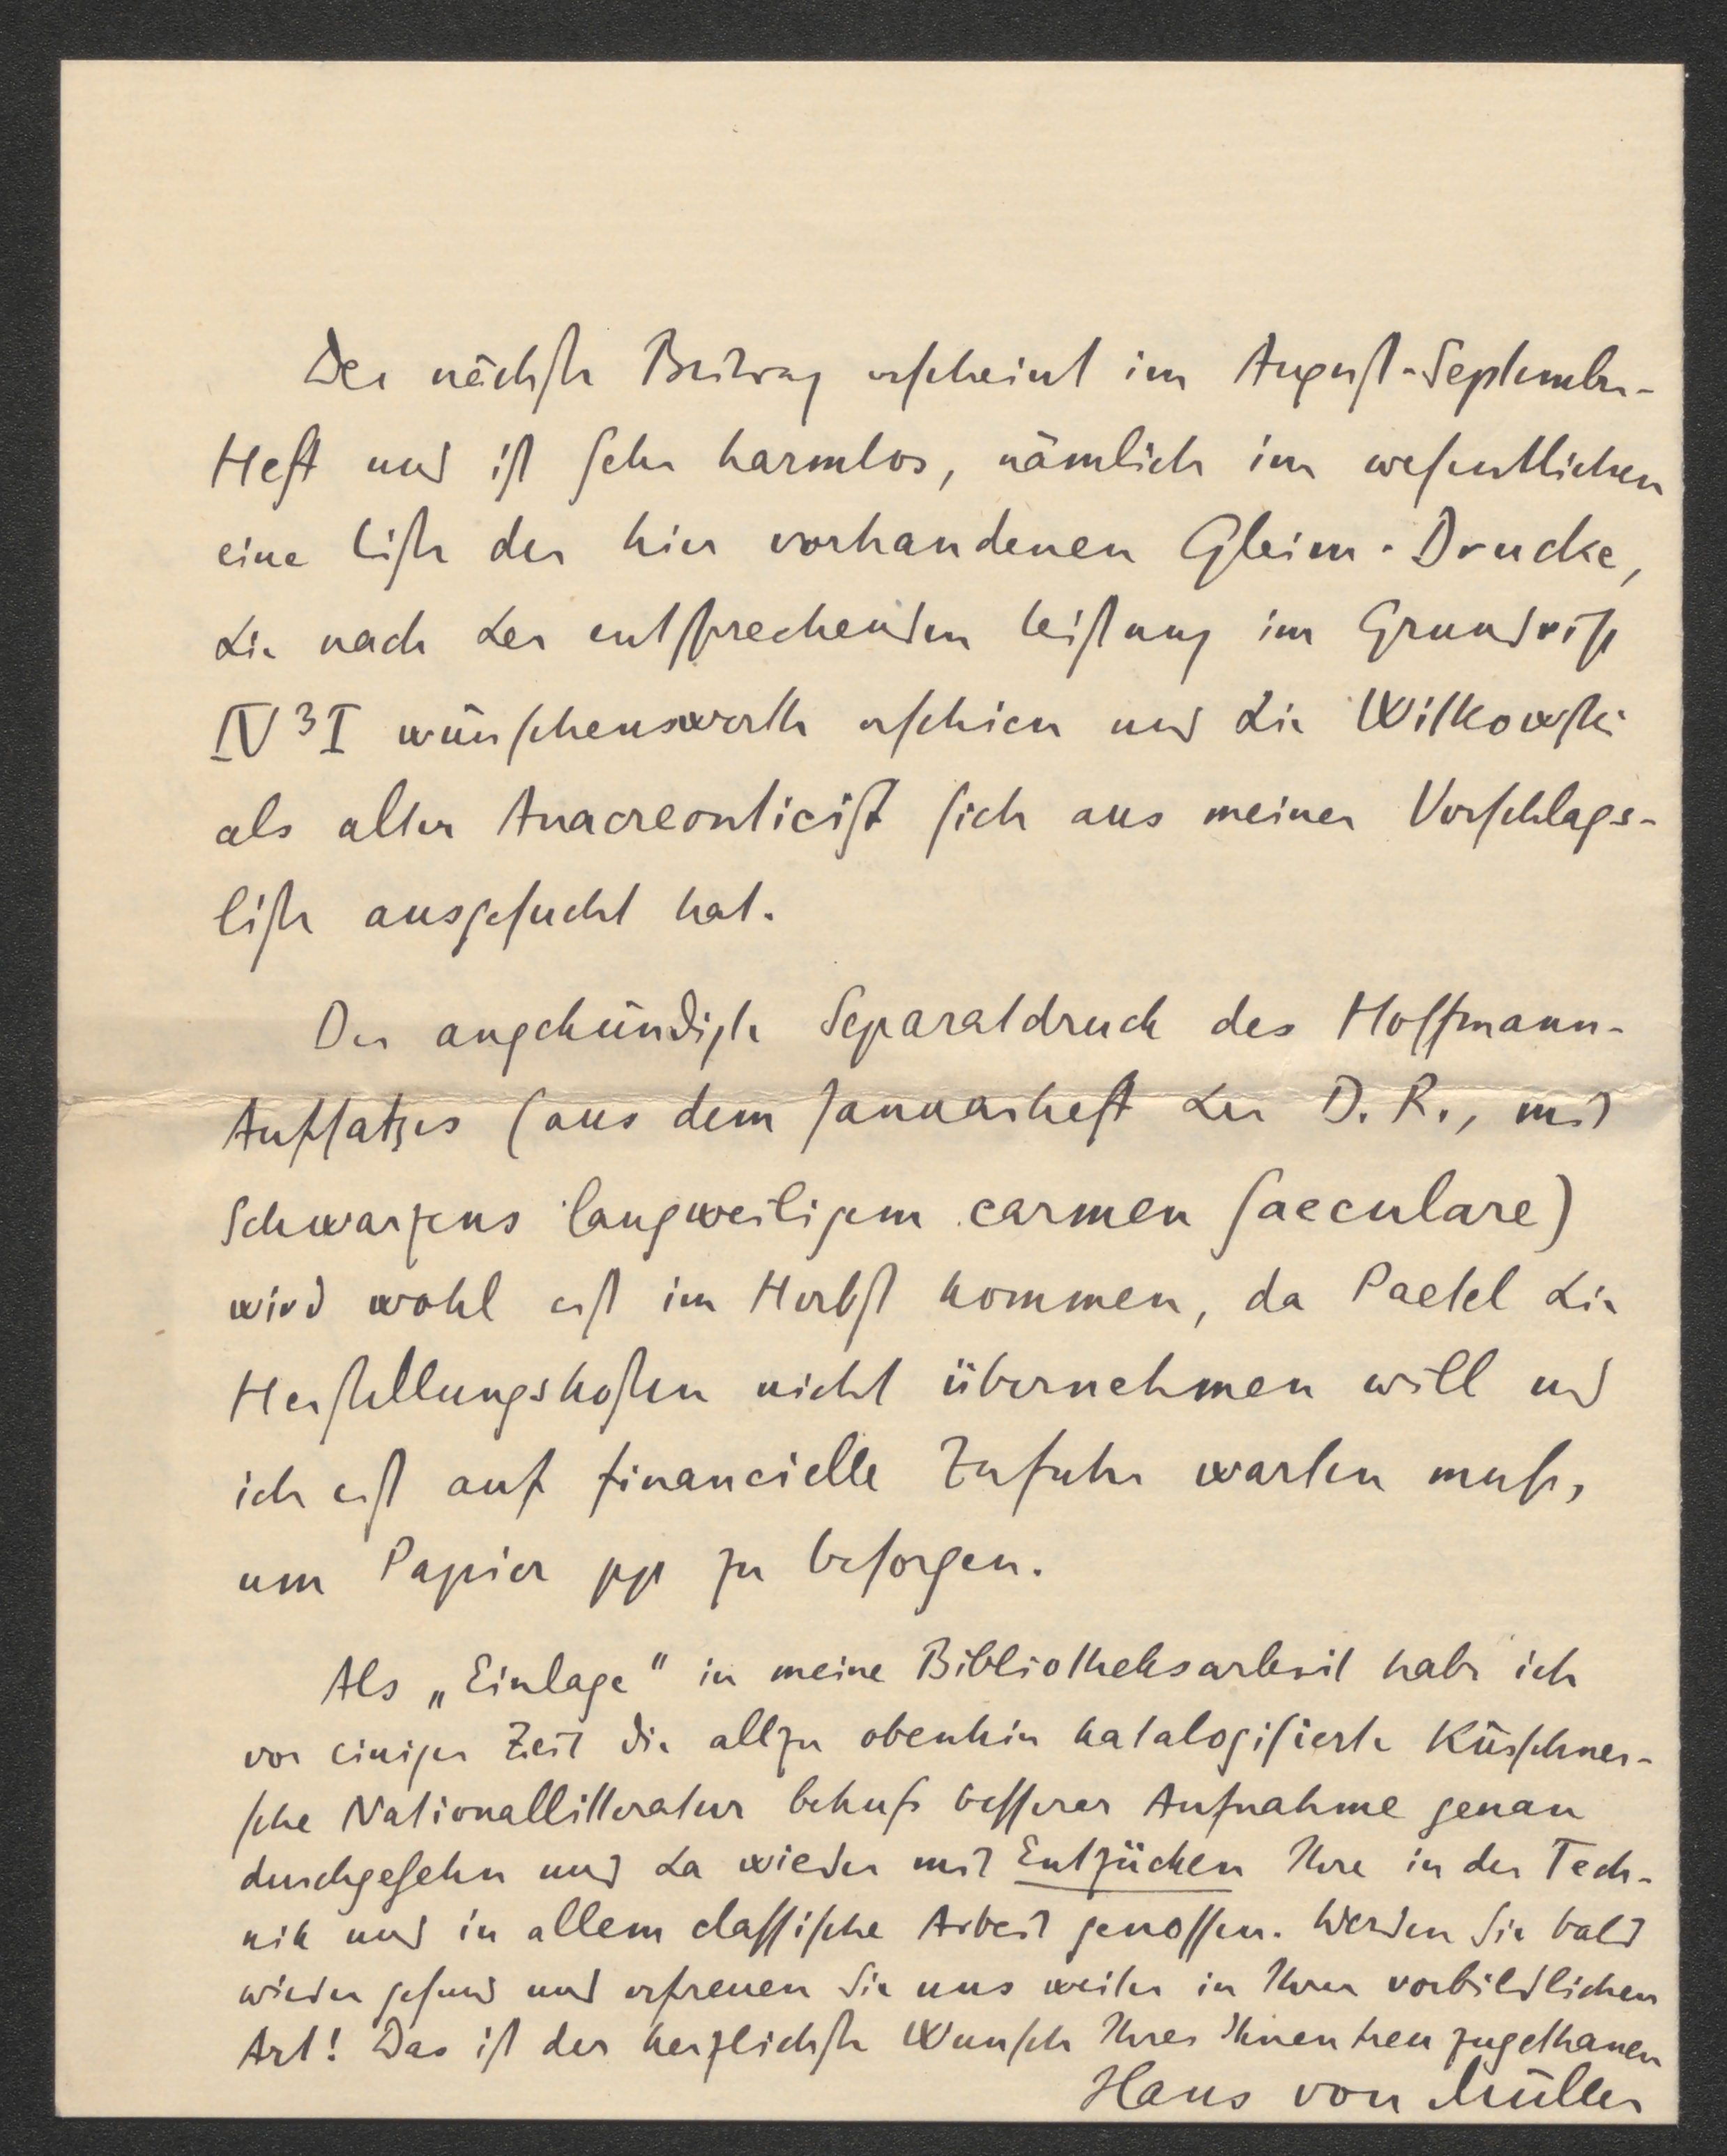 Der nächste Beitrag erscheint im August-September-
Heft und ist sehr harmlos, nämlich im wesentlichen
eine Liste der hier vorhandenen Gleim-Drucke,
die nach der entsprechenden Leistung im Grundriß
IV ³ I wünschenswerth erschien und die Witkowski
als alter Anacreonticist sich aus meiner Vorschlags-
liste ausgesucht hat.
Der angekündigte Separatdruck des Hoffmann-
Aufsatzes (aus dem Januarheft der D. R., mit
Schwarzens langweiligem carmen saeculare)
wird wohl erst im Herbst kommen, da Paetel die
Herstellungskosten nicht übernehmen will und
ich erst auf financielle Zufuhr warten muß,
um Papier pp zu besorgen.
Als „Einlage" in meine Bibliotheksarbeit habe ich
vor einiger Zeit die allzu obenhin katalogisierte Kürschner-
sche Nationallitteratur behufs besserer Aufnahme genau
durchgesehn und da wieder mit Entzücken Ihre in der Tech-
nik und in allem classische Arbeit genossen. Werden Sie bald
wieder gesund und erfreuen Sie uns weiter in Ihrer vorbildlichen
Art! Das ist der herzlichste Wunsch Ihres Ihnen treu zugethanen
Hans von Müller